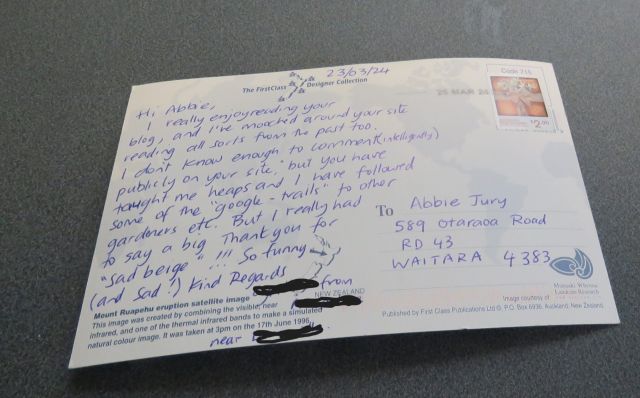 The FirstClass Designer Collection
23/03/24
Hi Abbie,
I really enjoy reading your
blog, and I've mooched around your site
reading all sorts from the past too.
I don't know enough to comment (intelligently)
publicly on your site, but you have
taught me heaps and I have followed
some of the "google-trails" to other
gardeners etc. But I really had
to say a big Thank you for
"sad beige" !!! So funny
(and sad!) Kind Regards
from
near
Mount Ruapehu eruption satellite image
NEW ZEALAND
This image was created by combining the visible, near
infrared, and one of the thermal infrared bands to make a simulated
natural colour image. It was taken at 3pm on the 17th June 1996.
Code 715
25 MAR 24
$2.00
To Abbie Jury
589 Otaraoa Road
RD 43
WAITARA 4383
Manaaki Whenua
Landcare Research
Image courtesy of:
Published by First Class Publications Ltd © P.O. Box 6936, Auckland, New Zealand.